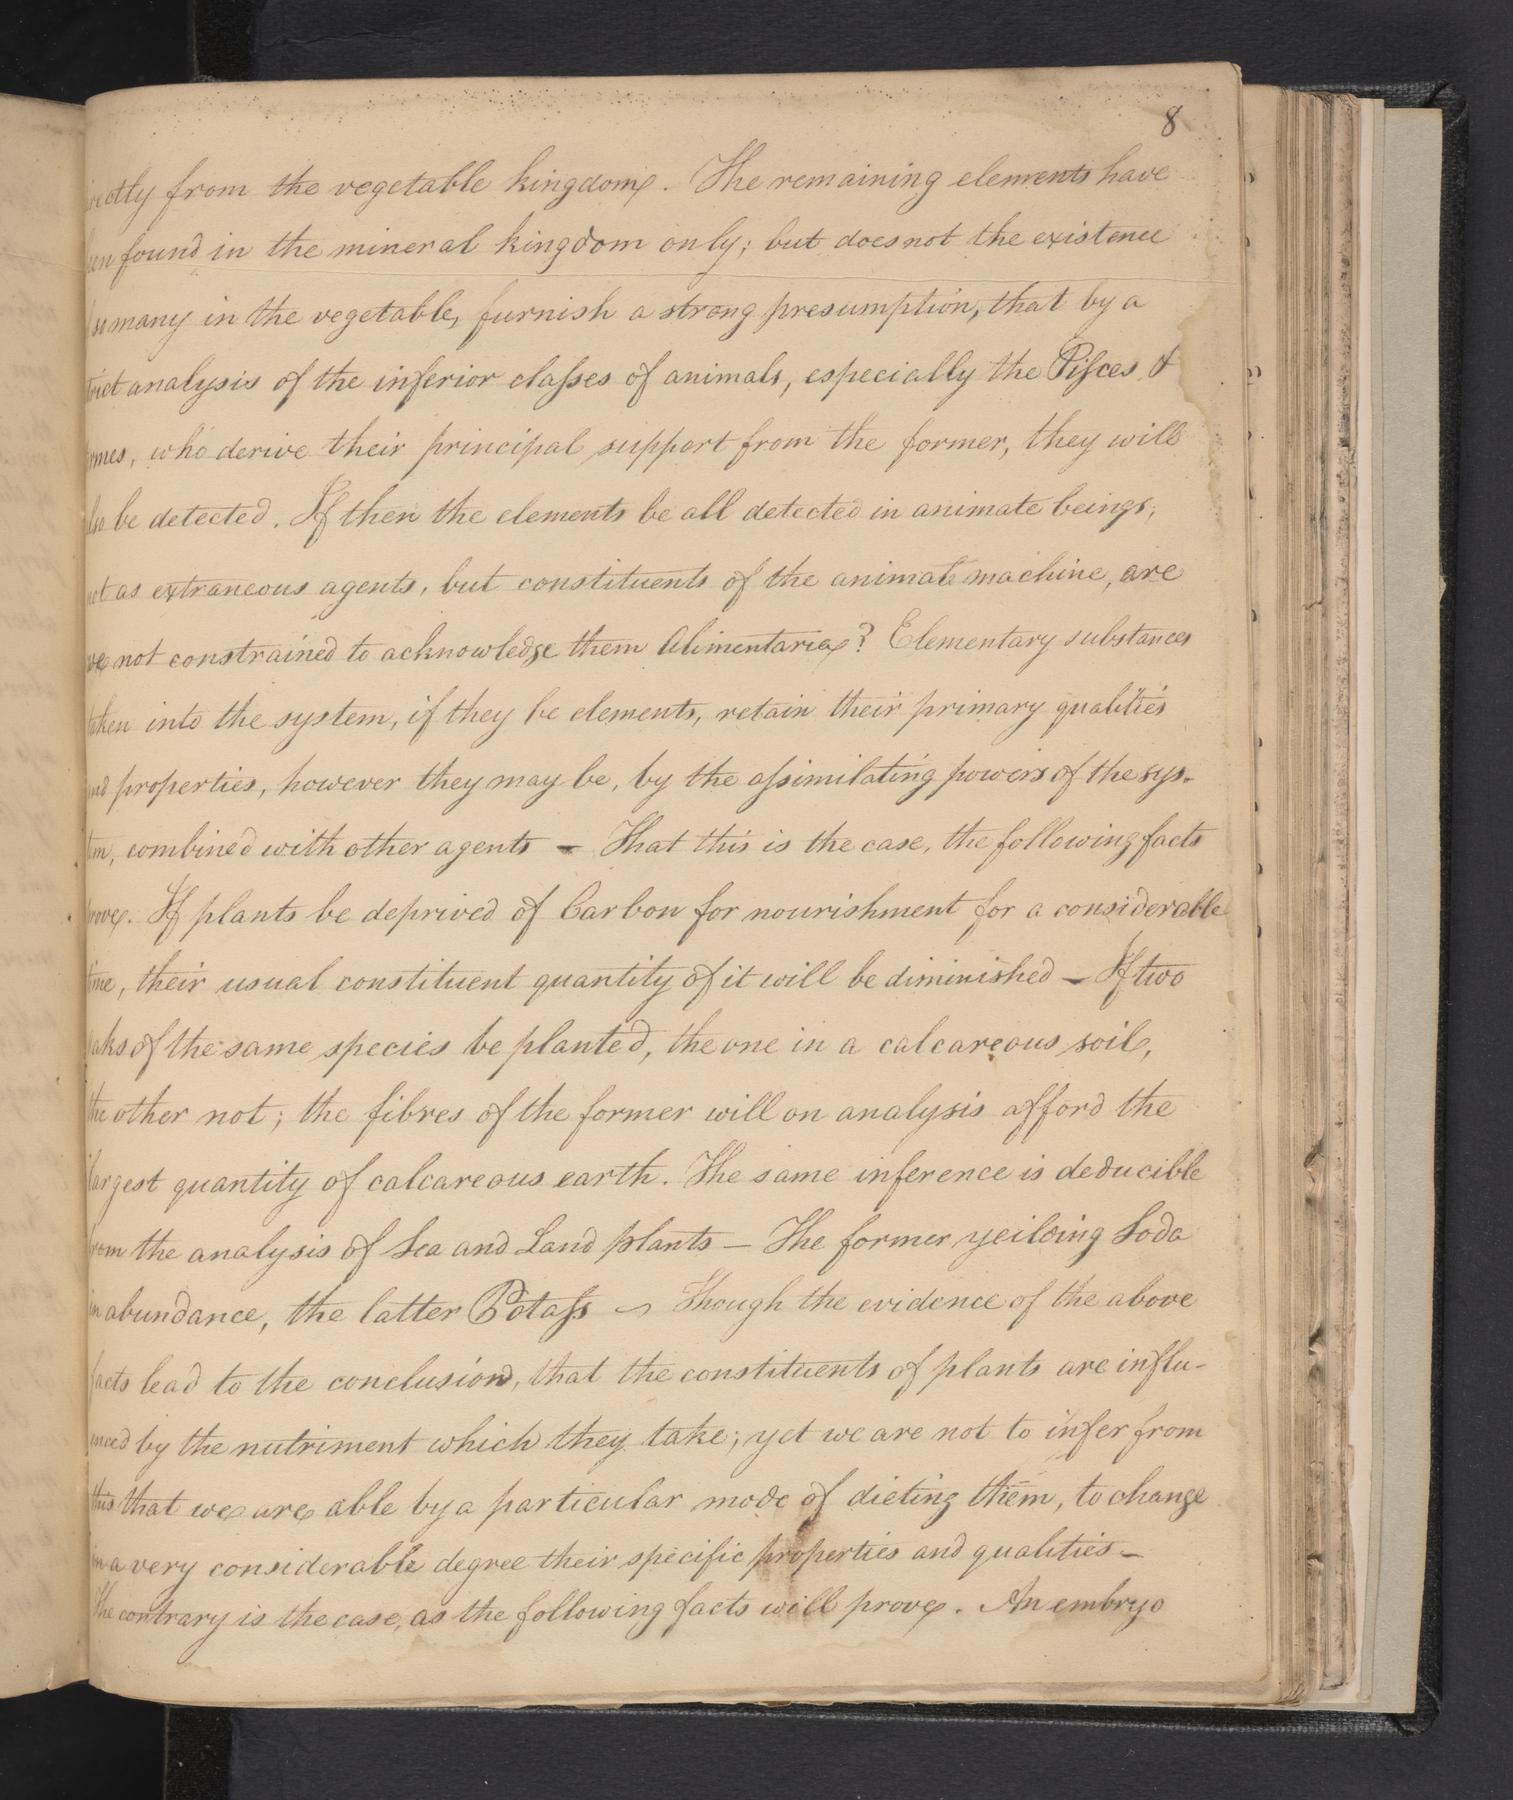 8
rectly from the vegetable kingdom. The remaining elements have
een found in the mineral kingdom only; but does not the existence
so many in the vegetable, furnish a strong presumption, that by a
trict analysis of the inferior classes of animals, especially the Pisces, &
rmes, who derive their principal support from the former, they will
lso be detected. If then the elements be all detected in animate beings,
not as extraneous agents, but constituents of the animal machine, are
we not constrained to acknowledge them Alimentaria? Elementary substances
taken into the system, if they be elements, retain their primary qualities
and properties, however they may be, by the assimilating powers of the sys-
tem, combined with other agents - That this is the case, the following facts
prove. If plants be deprived of Carbon for nourishment for a considerable
time, their usual constituent quantity of it will be diminished - If two
oaks of the same species be planted, the one in a calcareous soil,
the other not; the fibres of the former will on analysis afford the
largest quantity of calcareous earth. The same inference is deducible
from the analysis of Sea and Land plants - The former yeilding Soda
in abundance, the latter Potass - Though the evidence of the above
facts lead to the conclusion, that the constituents of plants are influ-
enced by the nutriment which they take; yet we are not to infer from
this that we are able by a particular mode of dieting them, to change
in a very considerable degree their specific properties and qualities -
The contrary is the case, as the following facts will prove. An embryo